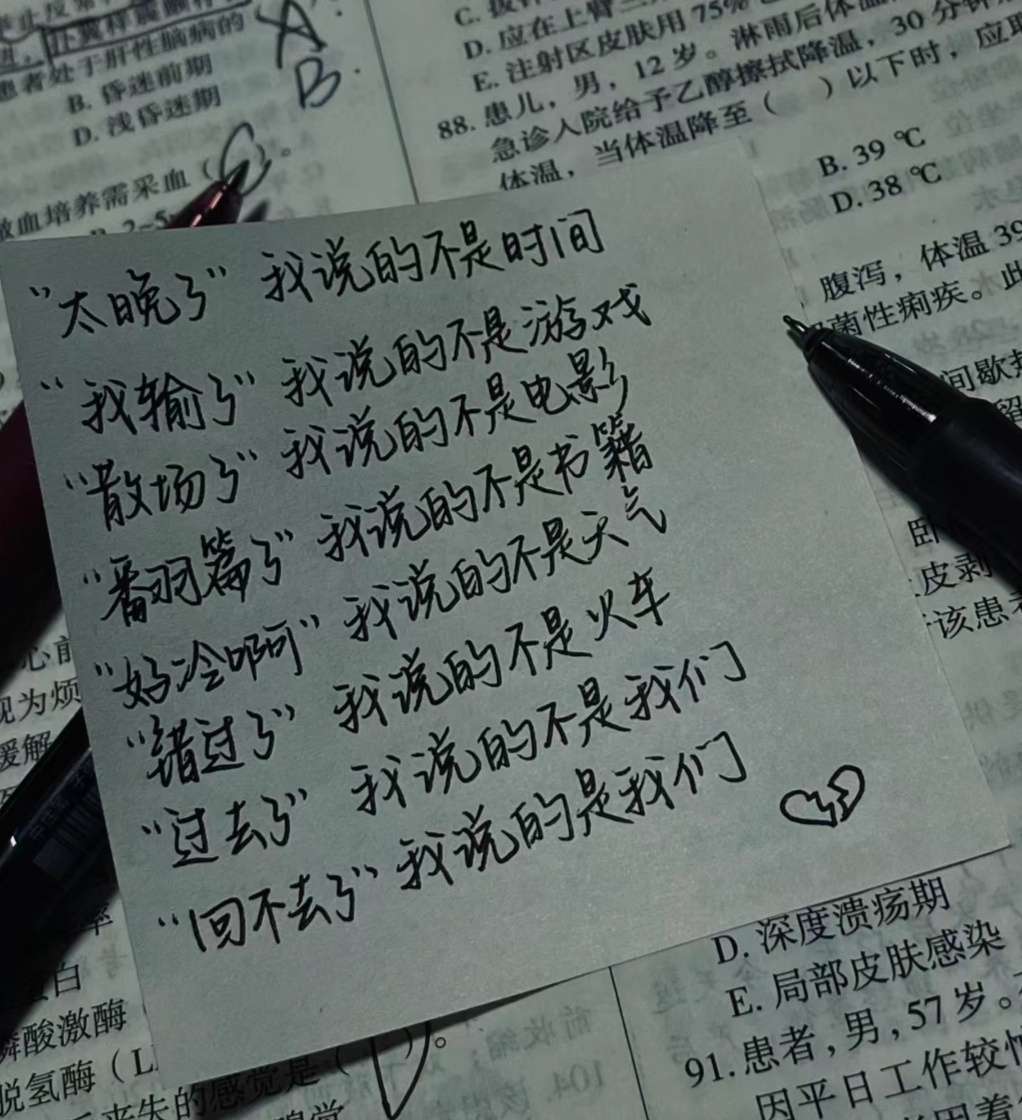 患者处于肝性脑病的
B. 昏迷前期
D. 浅昏迷期
A
B
血培养需采血（
D. 应在上臂三
E. 注射区皮肤用 75%
88. 患儿，男，12 岁。淋雨后体温
急诊入院给予乙醇擦拭降温，30 分钟
体温，当体温降至（ ）以下时，应
B. 39 ℃
D. 38 ℃
腹泻，体温 39
菌性痢疾。此
间歇
“太晚了” 我说的不是时间
“我输了” 我说的不是游戏
“散场了” 我说的不是电影
“翻篇了” 我说的不是书籍
“好冷啊” 我说的不是天气
“错过了” 我说的不是火车
“过去了” 我说的不是我们
“回不去了” 我说的是我们
皮剥
该患者
心前
视为烦
缓解
白
磷酸激酶
脱氢酶（L
来失的感觉是（ ）。
D. 深度溃疡期
E. 局部皮肤感染
91. 患者，男，57 岁。
因平日工作较忙